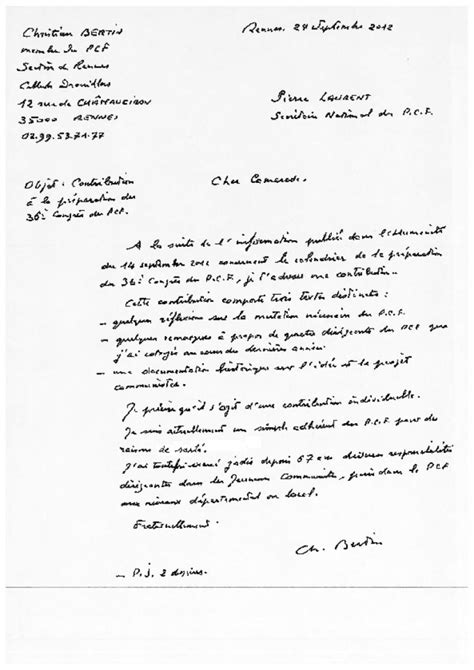 Christian BERTIN
membre du PCF
Section de Rennes
12 rue de
35000 RENNES
02.99.53.71.77
Rennes, 24 septembre 2012
Pierre LAURENT
Secrétaire National du P.C.F.
Objet : Contribution
à la préparation du
36è Congrès du PCF.
Cher Camarade,
A la suite de l'information publiée dans l'Humanité
du 14 septembre 2012 concernant le calendrier de la préparation
du 36è Congrès du P.C.F, je t'adresse une contribution.
Cette contribution comporte trois textes distincts :
- quelques réflexions sur la mutation nécessaire du P.C.F.
- quelques remarques à propos de quatre dirigeants du PCF que
j'ai cotoyés au cours des dernières années
- une documentation historique sur l'idée et le projet
communistes.
Je précise qu'il s'agit d'une contribution individuelle.
Je suis actuellement un simple adhérent du P.C.F pour des
raisons de santé.
J'ai toutefois exercé jadis depuis 57 ans diverses responsabilités
dirigeantes dans les Jeunesses Communistes, puis dans le PCF
aux niveaux départemental ou local.
Fraternellement.
Ch. Bertin
- P.J. 2 dossiers.